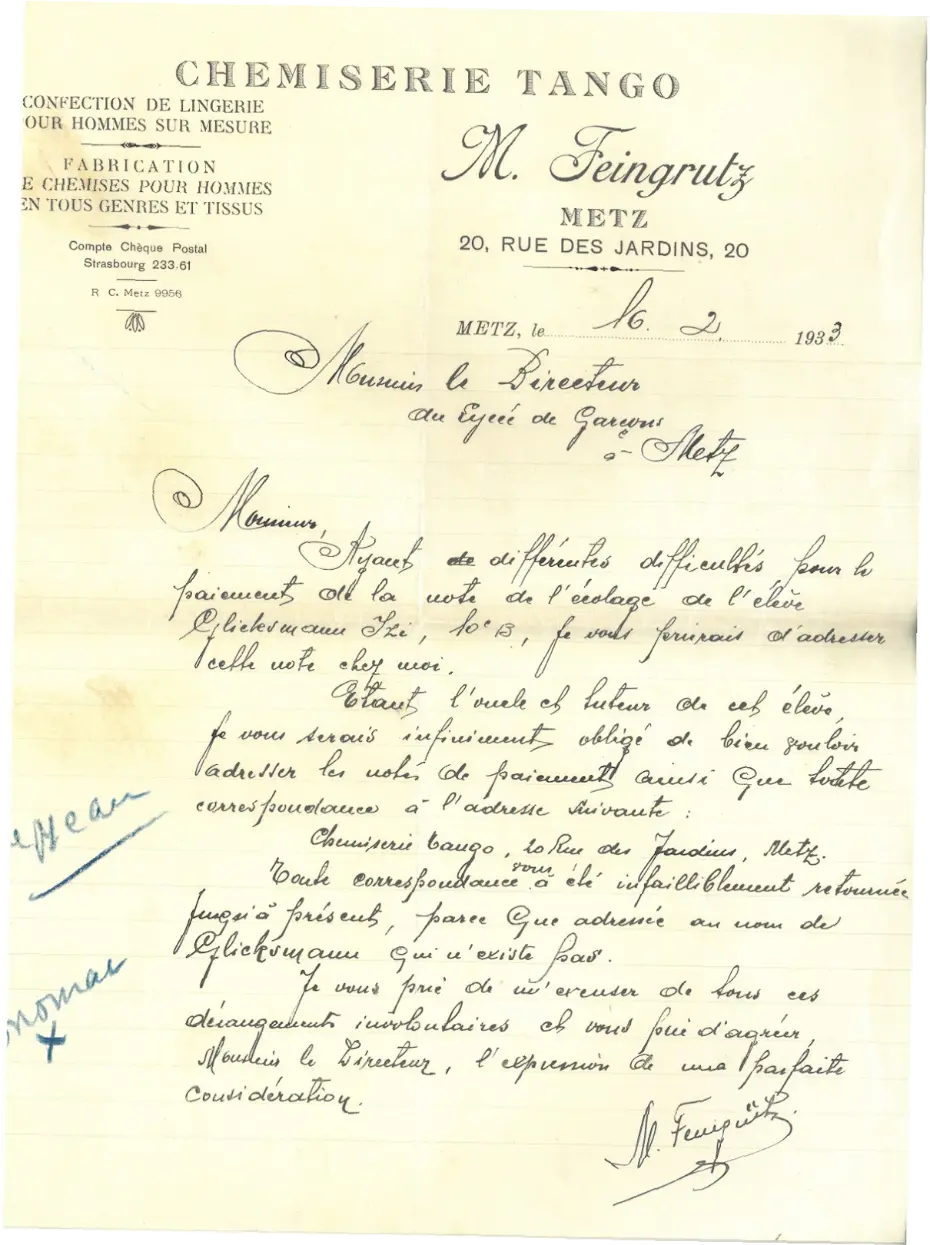 CHEMISERIE TANGO
CONFECTION DE LINGERIE
OUR HOMMES SUR MESURE
FABRICATION
E CHEMISES POUR HOMMES
EN TOUS GENRES ET TISSUS
Compte Chèque Postal
Strasbourg 233.61
R C. Metz 9956
M. Feingrutz
METZ
20, RUE DES JARDINS, 20
METZ, le 16. 2. 1933
Monsieur le Directeur
du Lycée de Garçons
à Metz
Monsieur,
Ayant de différentes difficultés, pour le
paiement de la note de l'écolage de l'élève
Glicksmann Izi, 10e B, je vous prierais d'adresser
cette note chez moi.
Etant l'oncle et tuteur de cet élève,
je vous serais infiniment obligé de bien vouloir
adresser les notes de paiement ainsi que toute
correspondance à l'adresse suivante :
Chemiserie Tango, 20 Rue des Jardins, Metz.
Toute correspondance vous a été infailliblement retournée
jusqu'à présent, parce que adressée au nom de
Glicksmann qui n'existe pas.
Je vous prie de m'excuser de tous ces
dérangements involontaires et vous prie d'agréer,
Monsieur le Directeur, l'expression de ma parfaite
considération.
M. Feingrütz